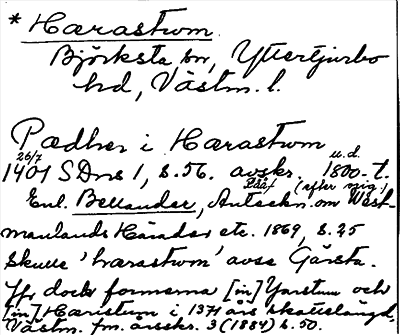 * Hærastwm
Björksta sn, Yttertjurbo
hd, Västm. l.
Pædher i Hærastwm
26/7 u.d.
1401 SDns 1, s. 56. avskr. 1800-t.
(efter orig.)
Enl. Bellander, Anteckn. om Väst-
manlands Härader etc. 1869, s. 25
skulle 'hærastwm' avse Gärsta.
Jfr dock formerna [in] Jarstum och
[in] Hæristum i 1371 års skattelängd,
Västm. fm. årsskr. 3 (1884) s. 50.